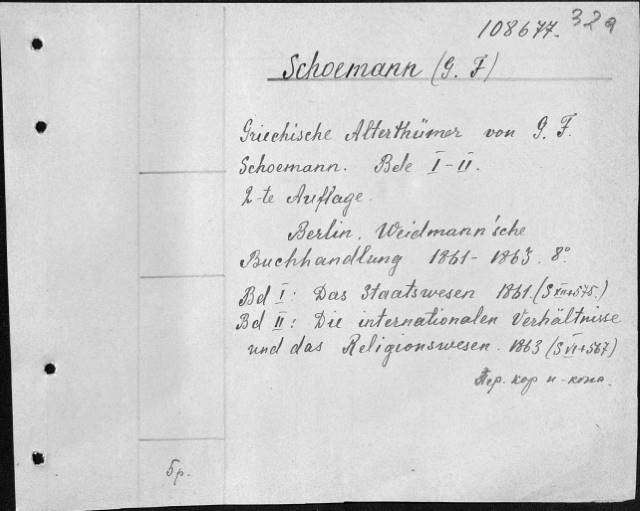 108677. 32а
Schoemann (G. F)
Griechische Alterthümer von G. F.
Schoemann. Bde I-II.
2-te Auflage.
Berlin. Weidmann'sche
Buchhandlung 1861-1863. 8°
Bd I: Das Staatswesen 1861. (S XII+575.)
Bd II: Die internationalen Verhältnisse
und das Religionswesen. 1863 (S VI+567)
Пер. кор и
5р.